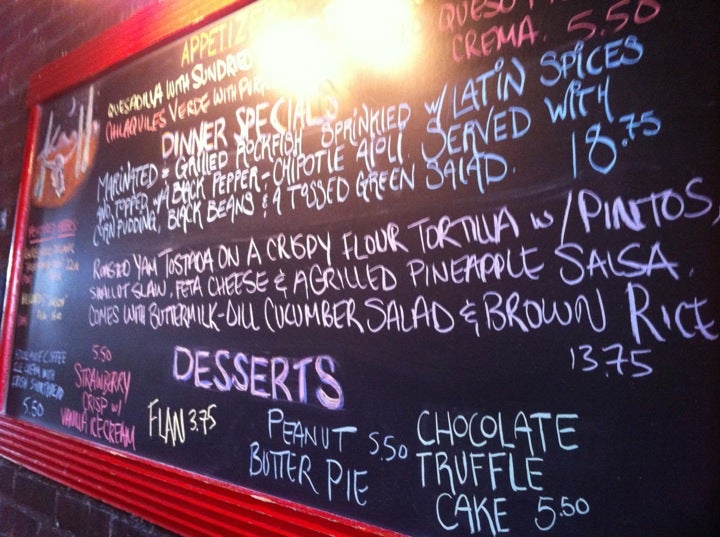 APPETIZ
QUESADILLA WITH SUNDRIED
CHILAQUILES VERDE WITH
QUESO
CREMA. 5.50
DINNER SPECIALS
MARINATED & GRILLED ROCKFISH SPRINKLED w/ LATIN SPICES
AND TOPPED w/ A BLACK PEPPER-CHIPOTLE AIOLI. SERVED WITH
CORN PUDDING, BLACK BEANS & A TOSSED GREEN SALAD. 18.75
ROASTED YAM TOSTADA ON A CRISPY FLOUR TORTILLA w/ PINTOS,
SHALLOT SLAW, FETA CHEESE & A GRILLED PINEAPPLE SALSA.
COMES WITH BUTTERMILK-DILL CUCUMBER SALAD & BROWN RICE
13.75
DESSERTS
COFFEE
ICE CREAM WITH
5.50
5.50
STRAWBERRY
CRISP w/
VANILLA ICE CREAM
FLAN 3.75
PEANUT 5.50
BUTTER PIE
CHOCOLATE
TRUFFLE
CAKE 5.50